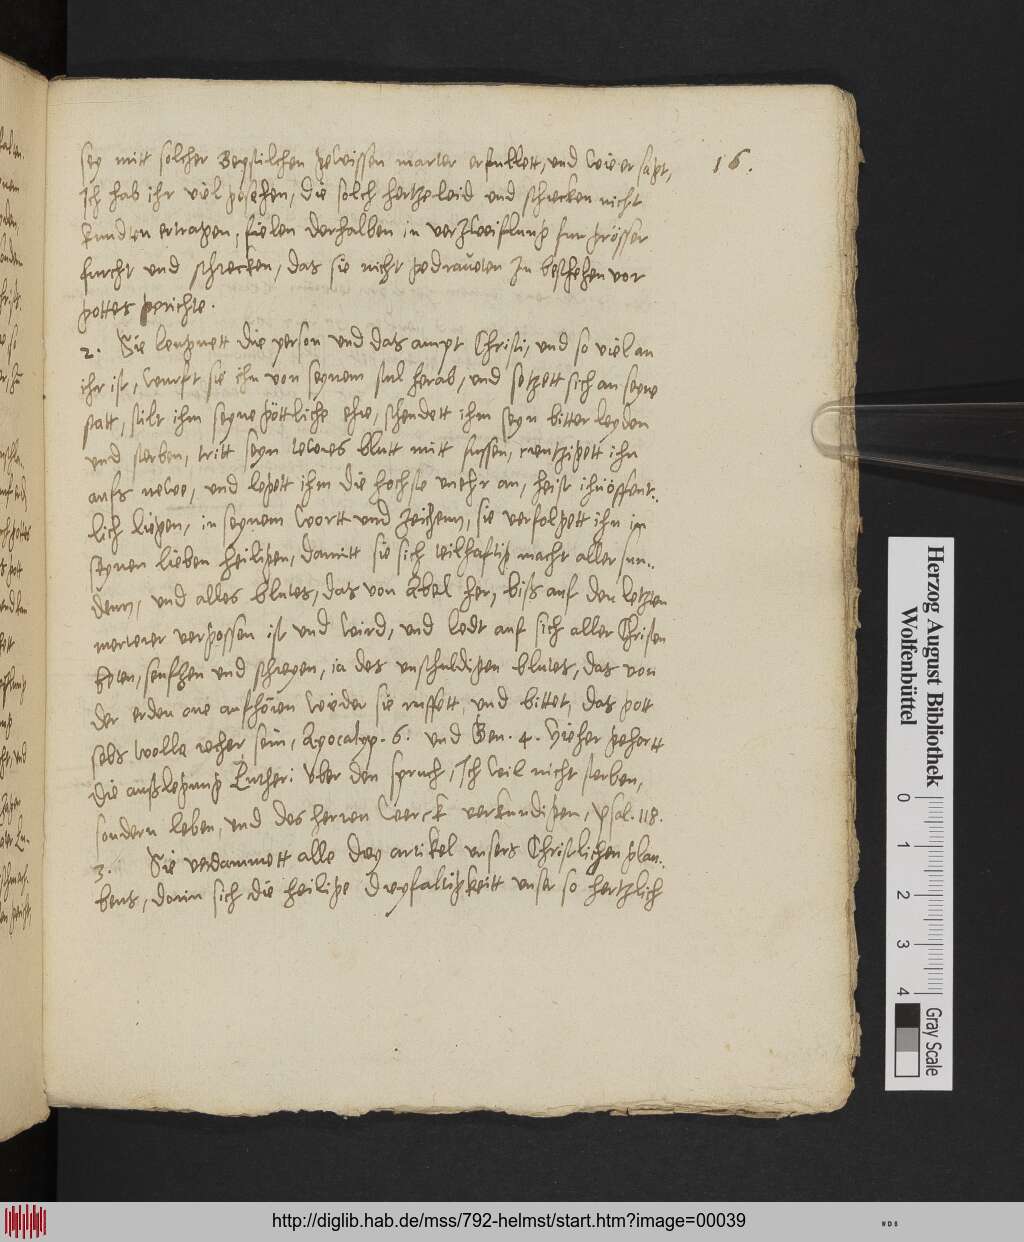 sey mitt solcher Beystlichen gewissen marter erfullett, und wie er sagt,
16.
Ich hab ihr viel gesehen, die solch hertzeleid und schrecken nicht
kundten ertragen, fielen derhalben in verzweiflung fur grösser
furcht und schrecken, das sie nicht gedraueten zu bestehen vor
gottes gerichte.
2. Sie leugnett die person und das ampt Christi, und so viel an
ihr ist, wurfft sie ihn von seynem stul herab, und setzett sich an seyne
statt, stilt ihm seyne göttliche ehre, schendett ihm seyn bitter leyden
und sterben, tritt seyn tewres blutt mitt fussen, creutzigett ihn
aufs newe, und legett ihm die hochste unehr an, heist ihn öffent-
lich liegen, in seynem wortt und zeichenn, sie verfolgett ihn in
seynen lieben heiligen, damitt sie sich teilhaftig macht aller sun-
denn, und alles blutes, das von Abel her, biß auf den letzten
merterer vergossen ist und wird, und ledt auf sich aller Christen
senfftzen und schreyen, ia des unschuldigen blutes, das von
der erden one aufhören wieder sie ruffett, und bittet, das gott
selbs wolle recher sein, Apocalyp. 6. und Gen. 4. Hieher gehortt
die außlegung Lutheri uber den spruch, Ich wil nicht sterben,
sondern leben, und des herren werck verkundigen, Psal. 118.
3. Sie verdammett alle drey artikel unsers Christlichen glau-
bens, dorin sich die heilige dreyfaltigkeitt unser so hertzlich
Herzog August Bibliothek
Wolfenbüttel
0 1 2 3 4
Gray Scale
http://diglib.hab.de/mss/792-helmst/start.htm?image=00039